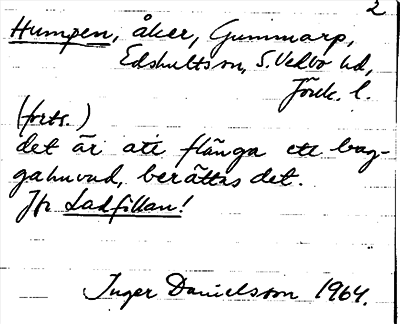 2
Humpen, åker, Gummarp,
Edshultssn, S. Vedbo hd,
Jönk. l.
(forts.)
det är att flänga ett bag-
gahuvud, berättas det.
Jfr Ladfillan!
Inger Danielsson 1964.